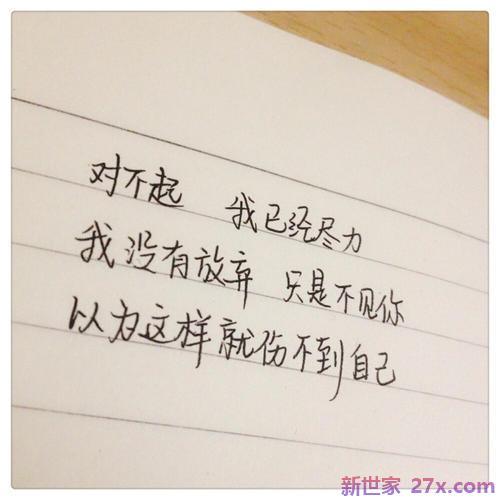 对不起 我已经尽力
我没有放弃 只是不见你
以为这样就伤不到自己
新世家 27x.com